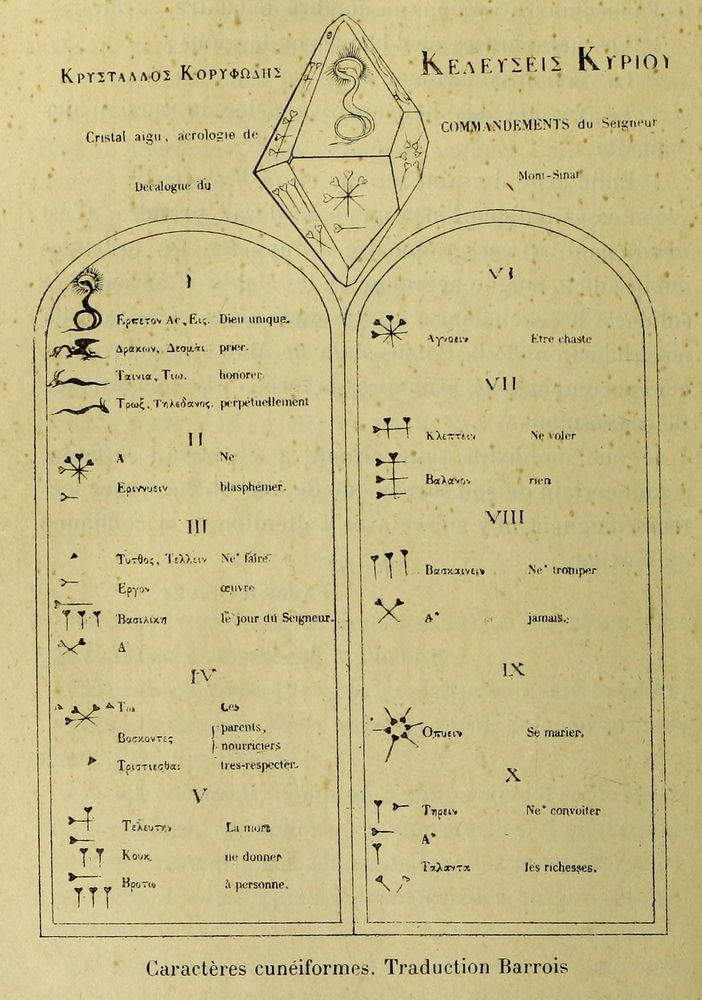 Κρυσταλλος Κορυφωδης
Κελευσεις Κυριου
Cristal aigu, acrologie de
COMMANDEMENTS du Seigneur
Decalogue du
Mont-Sinaï
I
Ερπετον Ας, Εις. Dieu unique.
Δρακων, Δεσμαι. prier.
Ταινια, Τιω. honorer.
Τρωξ, Τηλεδανος. perpétuellement
II
Α Ne
Εριννυειν blasphémer.
III
Τυτθος, Τελλειν Ne faire
Εργον œuvre
Βασιλικη le jour du Seigneur.
Α
IV
Τω Les
Βοσκοντες parents, nourriciers
Τριστιεσθαι tres-respecter.
V
Τελευτην La mort
Κουκ ne donner
Βροτω à personne.
VI
Αγνοειν Etre chaste
VII
Κλεπτειν Ne voler
Βαλανον rien
VIII
Βασκαινειν Ne* tromper
Α* jamais.
IX
Οπυειν Se marier.
X
Τηρειν Ne* convoiter
Α*
Ταλαντα les richesses.
Caractères cunéiformes. Traduction Barrois